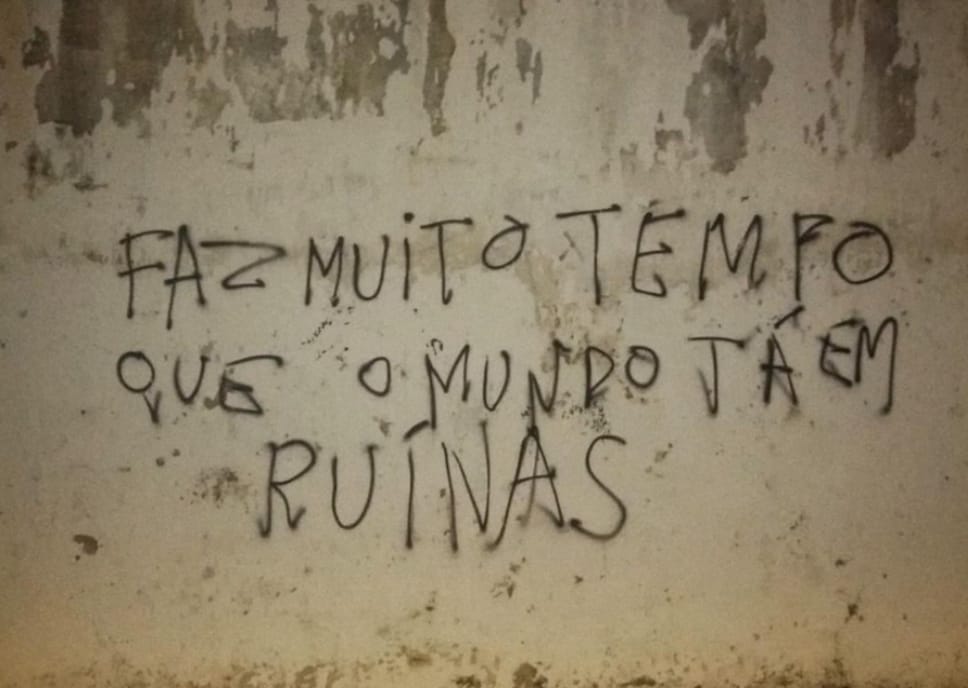 FAZ MUITO TEMPO
QUE O MUNDO JÁ EM
RUÍNAS